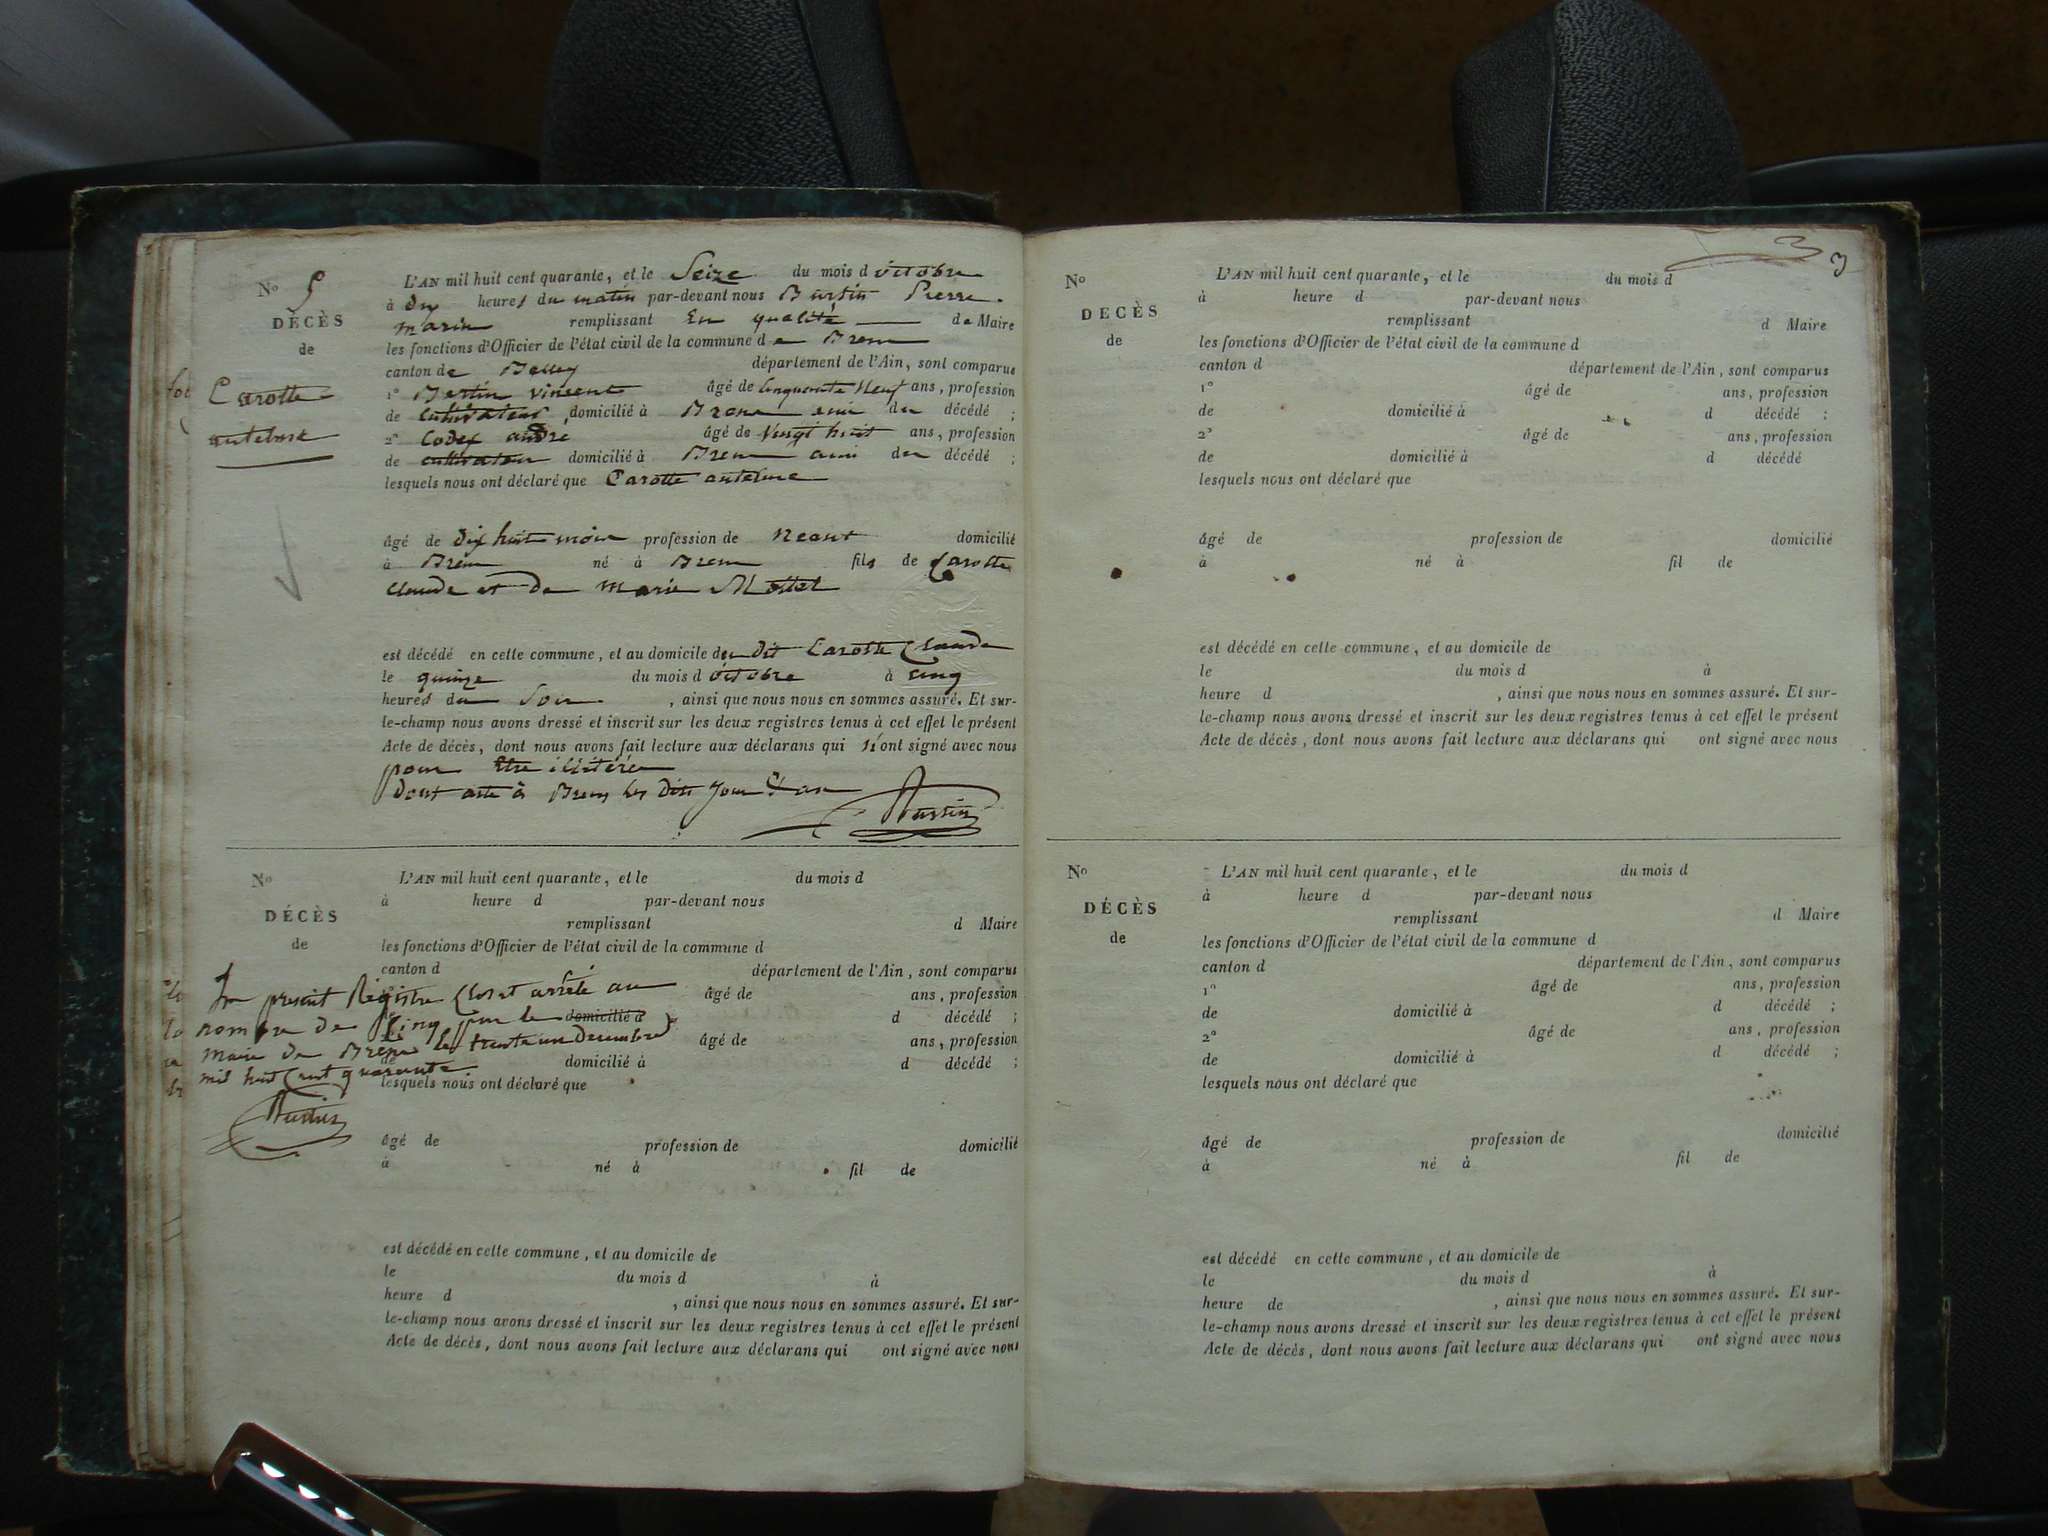 No 5
DÉCÈS
de
Carotte
antelme
L'AN mil huit cent quarante, et le Seize du mois d octobre
à dix heures du matin par-devant nous Burtin Pierre
marin remplissant En qualité de Maire
les fonctions d'Officier de l'état civil de la commune de Brens
canton de Belley département de l'Ain, sont comparus
1º Bertin vincent âgé de Cinquante Neuf ans, profession
de cultivateur domicilié à Brens ami du décédé ;
2º Codex andré âgé de Vingt huit ans, profession
de cultivateur domicilié à Brens ami du décédé ;
lesquels nous ont déclaré que Carotte antelme
âgé de dix huit mois profession de Neant domicilié
à Brens né à Brens fils de Carotte
claude et de marie Mottet
est décédé en cette commune, et au domicile du dit Carotte Claude
le quinze du mois d octobre à cinq
heures du Soir , ainsi que nous nous en sommes assuré. Et sur-
le-champ nous avons dressé et inscrit sur les deux registres tenus à cet effet le présent
Acte de décès, dont nous avons fait lecture aux déclarans qui n'ont signé avec nous
pour être illitérés
Dont acte à Brens les dits jour & an
Burtin
No
DÉCÈS
de
L'AN mil huit cent quarante, et le du mois d
à heure d par-devant nous
remplissant d Maire
les fonctions d'Officier de l'état civil de la commune d
canton d département de l'Ain, sont comparus
âgé de ans, profession
domicilié à d décédé ;
âgé de ans, profession
domicilié à d décédé ;
lesquels nous ont déclaré que
Le present Registre Clos et arrêté au
nombre de Cinq par le
maire de Brens le trente un Decembre
mil huit Cent quarante
Burtin
âgé de profession de domicilié
à né à fil de
est décédé en cette commune, et au domicile de
le du mois d à
heure d , ainsi que nous nous en sommes assuré. Et sur-
le-champ nous avons dressé et inscrit sur les deux registres tenus à cet effet le présent
Acte de décès, dont nous avons fait lecture aux déclarans qui ont signé avec nous
3
3
No
DÉCÈS
de
L'AN mil huit cent quarante, et le du mois d
à heure d par-devant nous
remplissant d Maire
les fonctions d'Officier de l'état civil de la commune d
canton d département de l'Ain, sont comparus
1º âgé de ans, profession
de domicilié à d décédé ;
2º âgé de ans, profession
de domicilié à d décédé
lesquels nous ont déclaré que
âgé de profession de domicilié
à né à fil de
est décédé en cette commune, et au domicile de
le du mois d à
heure d , ainsi que nous nous en sommes assuré. Et sur-
le-champ nous avons dressé et inscrit sur les deux registres tenus à cet effet le présent
Acte de décès, dont nous avons fait lecture aux déclarans qui ont signé avec nous
No
DÉCÈS
de
L'AN mil huit cent quarante, et le du mois d
à heure d par-devant nous
remplissant d Maire
les fonctions d'Officier de l'état civil de la commune d
canton d département de l'Ain, sont comparus
1º âgé de ans, profession
de domicilié à d décédé ;
2º âgé de ans, profession
de domicilié à d décédé ;
lesquels nous ont déclaré que
âgé de profession de domicilié
à né à fil de
est décédé en cette commune, et au domicile de
le du mois d à
heure de , ainsi que nous nous en sommes assuré. Et sur-
le-champ nous avons dressé et inscrit sur les deux registres tenus à cet effet le présent
Acte de décès, dont nous avons fait lecture aux déclarans qui ont signé avec nous